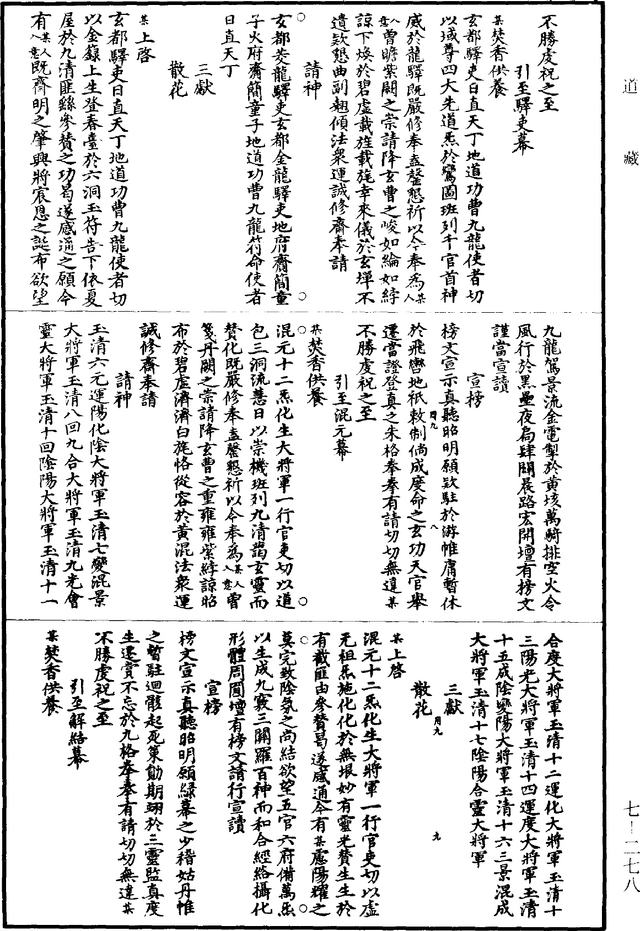 道藏
不勝虔祝之至
引至驛吏幕
某焚香供養
玄都驛吏日直天丁地道功曹九龍使者切
以域尊四大先道炁於鸞圖班列千官首神
威於龍驛既嚴修奉盍罄懇祈以今奉爲某
人入意曾瞻紫闕之崇請降玄曹之峻如綸如綍
諒下煥於碧虛載旌載旄幸來儀於玄墠不
遺欵懇曲副翹傾法衆運誠修齋奉請
請神
玄都茭龍驛吏玄都金龍驛吏地府齋簡童
子火府齋簡童子地道功曹九龍符命使者
日直天丁
三獻
散花
某上啓
玄都驛吏日直天丁地道功曹九龍使者切
以金籙上生登春臺於六洞玉符告下依夏
屋於九清匪緣參贊之功曷遂感通之願今
有某人入意既齊明之肇興將宸恩之誕布欲望
九龍駕景流金電掣於黃垓萬騎排空火令
風行於黑壘夜扃肆闢晨路宏開壇有榜文
謹當宣讀
宣榜
榜文宣示真聽昭明願欽駐於游帷庸暫休
於飛轡地祇敕制倘成度命之玄功天官舉
遷當證登真之朱格奉奉有請切切無違某
不勝虔祝之至
引至混元幕
某焚香供養
混元十二炁化生大將軍一行官吏切以道
包三洞流慧日以崇機班列九清藹玄靈而
贊化既嚴修奉盍罄懇祈以今奉爲某人入意曾
箋丹闕之崇請降玄曹之重雍雍紫綍諒昭
布於碧虛濟濟白旄恪從容於黃混法衆運
誠修齋奉請
請神
玉清六元運陽化陰大將軍玉清七變混景
大將軍玉清八回九合大將軍玉清九光會
靈大將軍玉清十回陰陽大將軍玉清十一
合度大將軍玉清十二運化大將軍玉清十
三陽光大將軍玉清十四運度大將軍玉清
十五咸陰變陽大將軍玉清十六三景混成
大將軍玉清十七陰陽合靈大將軍
三獻
散花
某上啓
混元十二炁化生大將軍一行官吏切以虛
元祖炁施化化於無垠妙有靈光贊生生於
有截匪由參贊曷遂感通今有某慮陽耀之
莫完致陰氛之尚結欲望五官六府備萬炁
以生成九竅三關羅百神而和合經絡攝化
形體周圓壇有榜文請行宣讀
宣榜
榜文宣示真聽昭明願綠幕之少稽姑丹帷
之暫駐迴骸起死策勛期翊於三靈監真度
生遷賞不忘於九格奉奉有請切切無違某
不勝虔祝之至
引至解結幕
某焚香供養
七－二七八